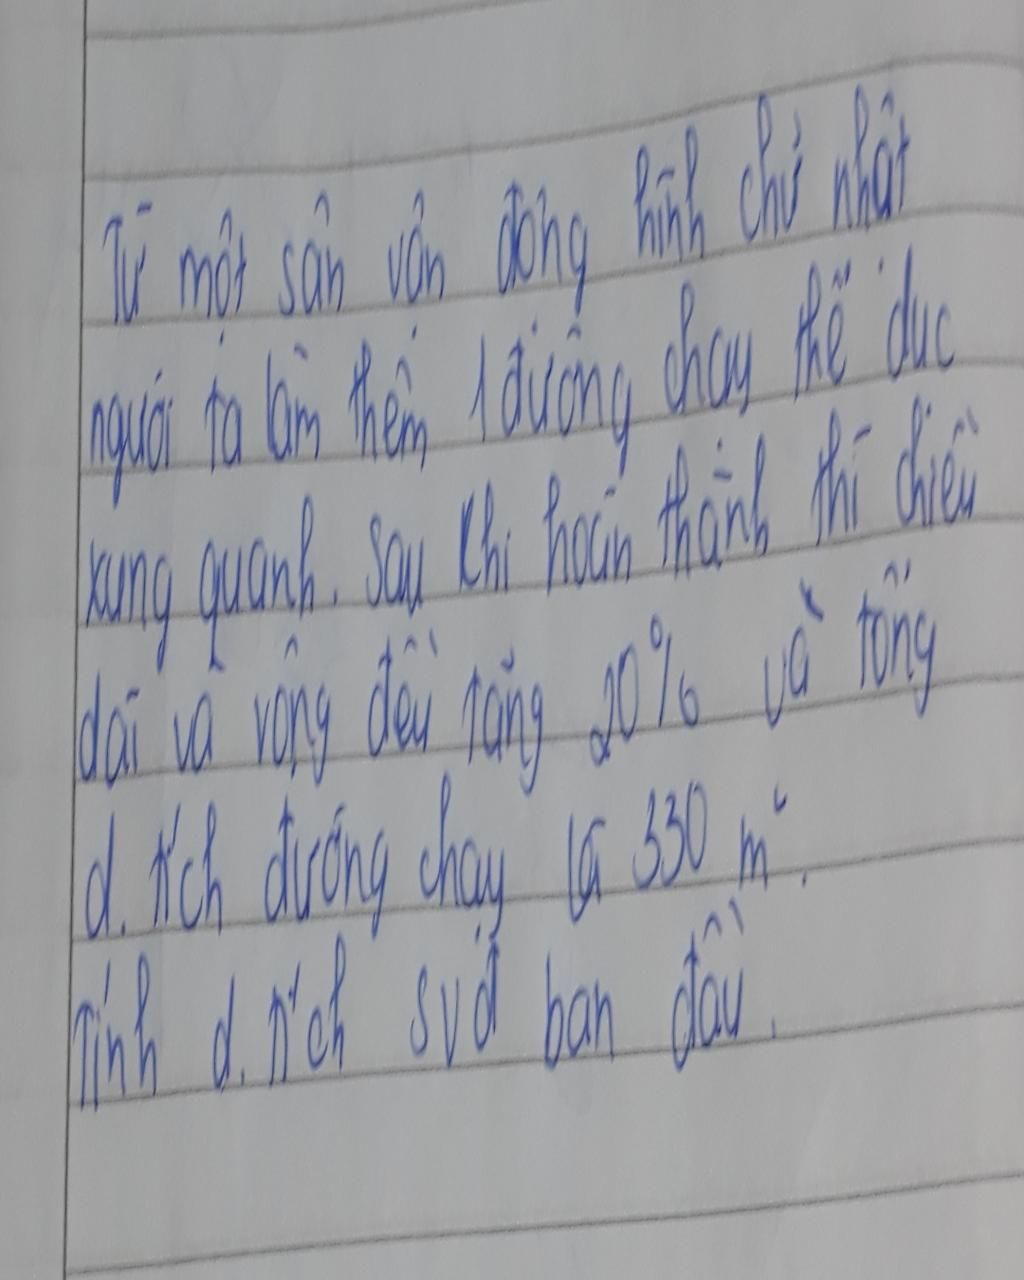 Từ một sân vận động hình chữ nhật
người ta làm thêm 1 đường chạy thể dục
xung quanh. Sau khi hoàn thành thì chiều
dài và rộng đều tăng 20% và tổng
d. tích đường chạy là 330 m².
Tính d. tích svđ ban đầu.